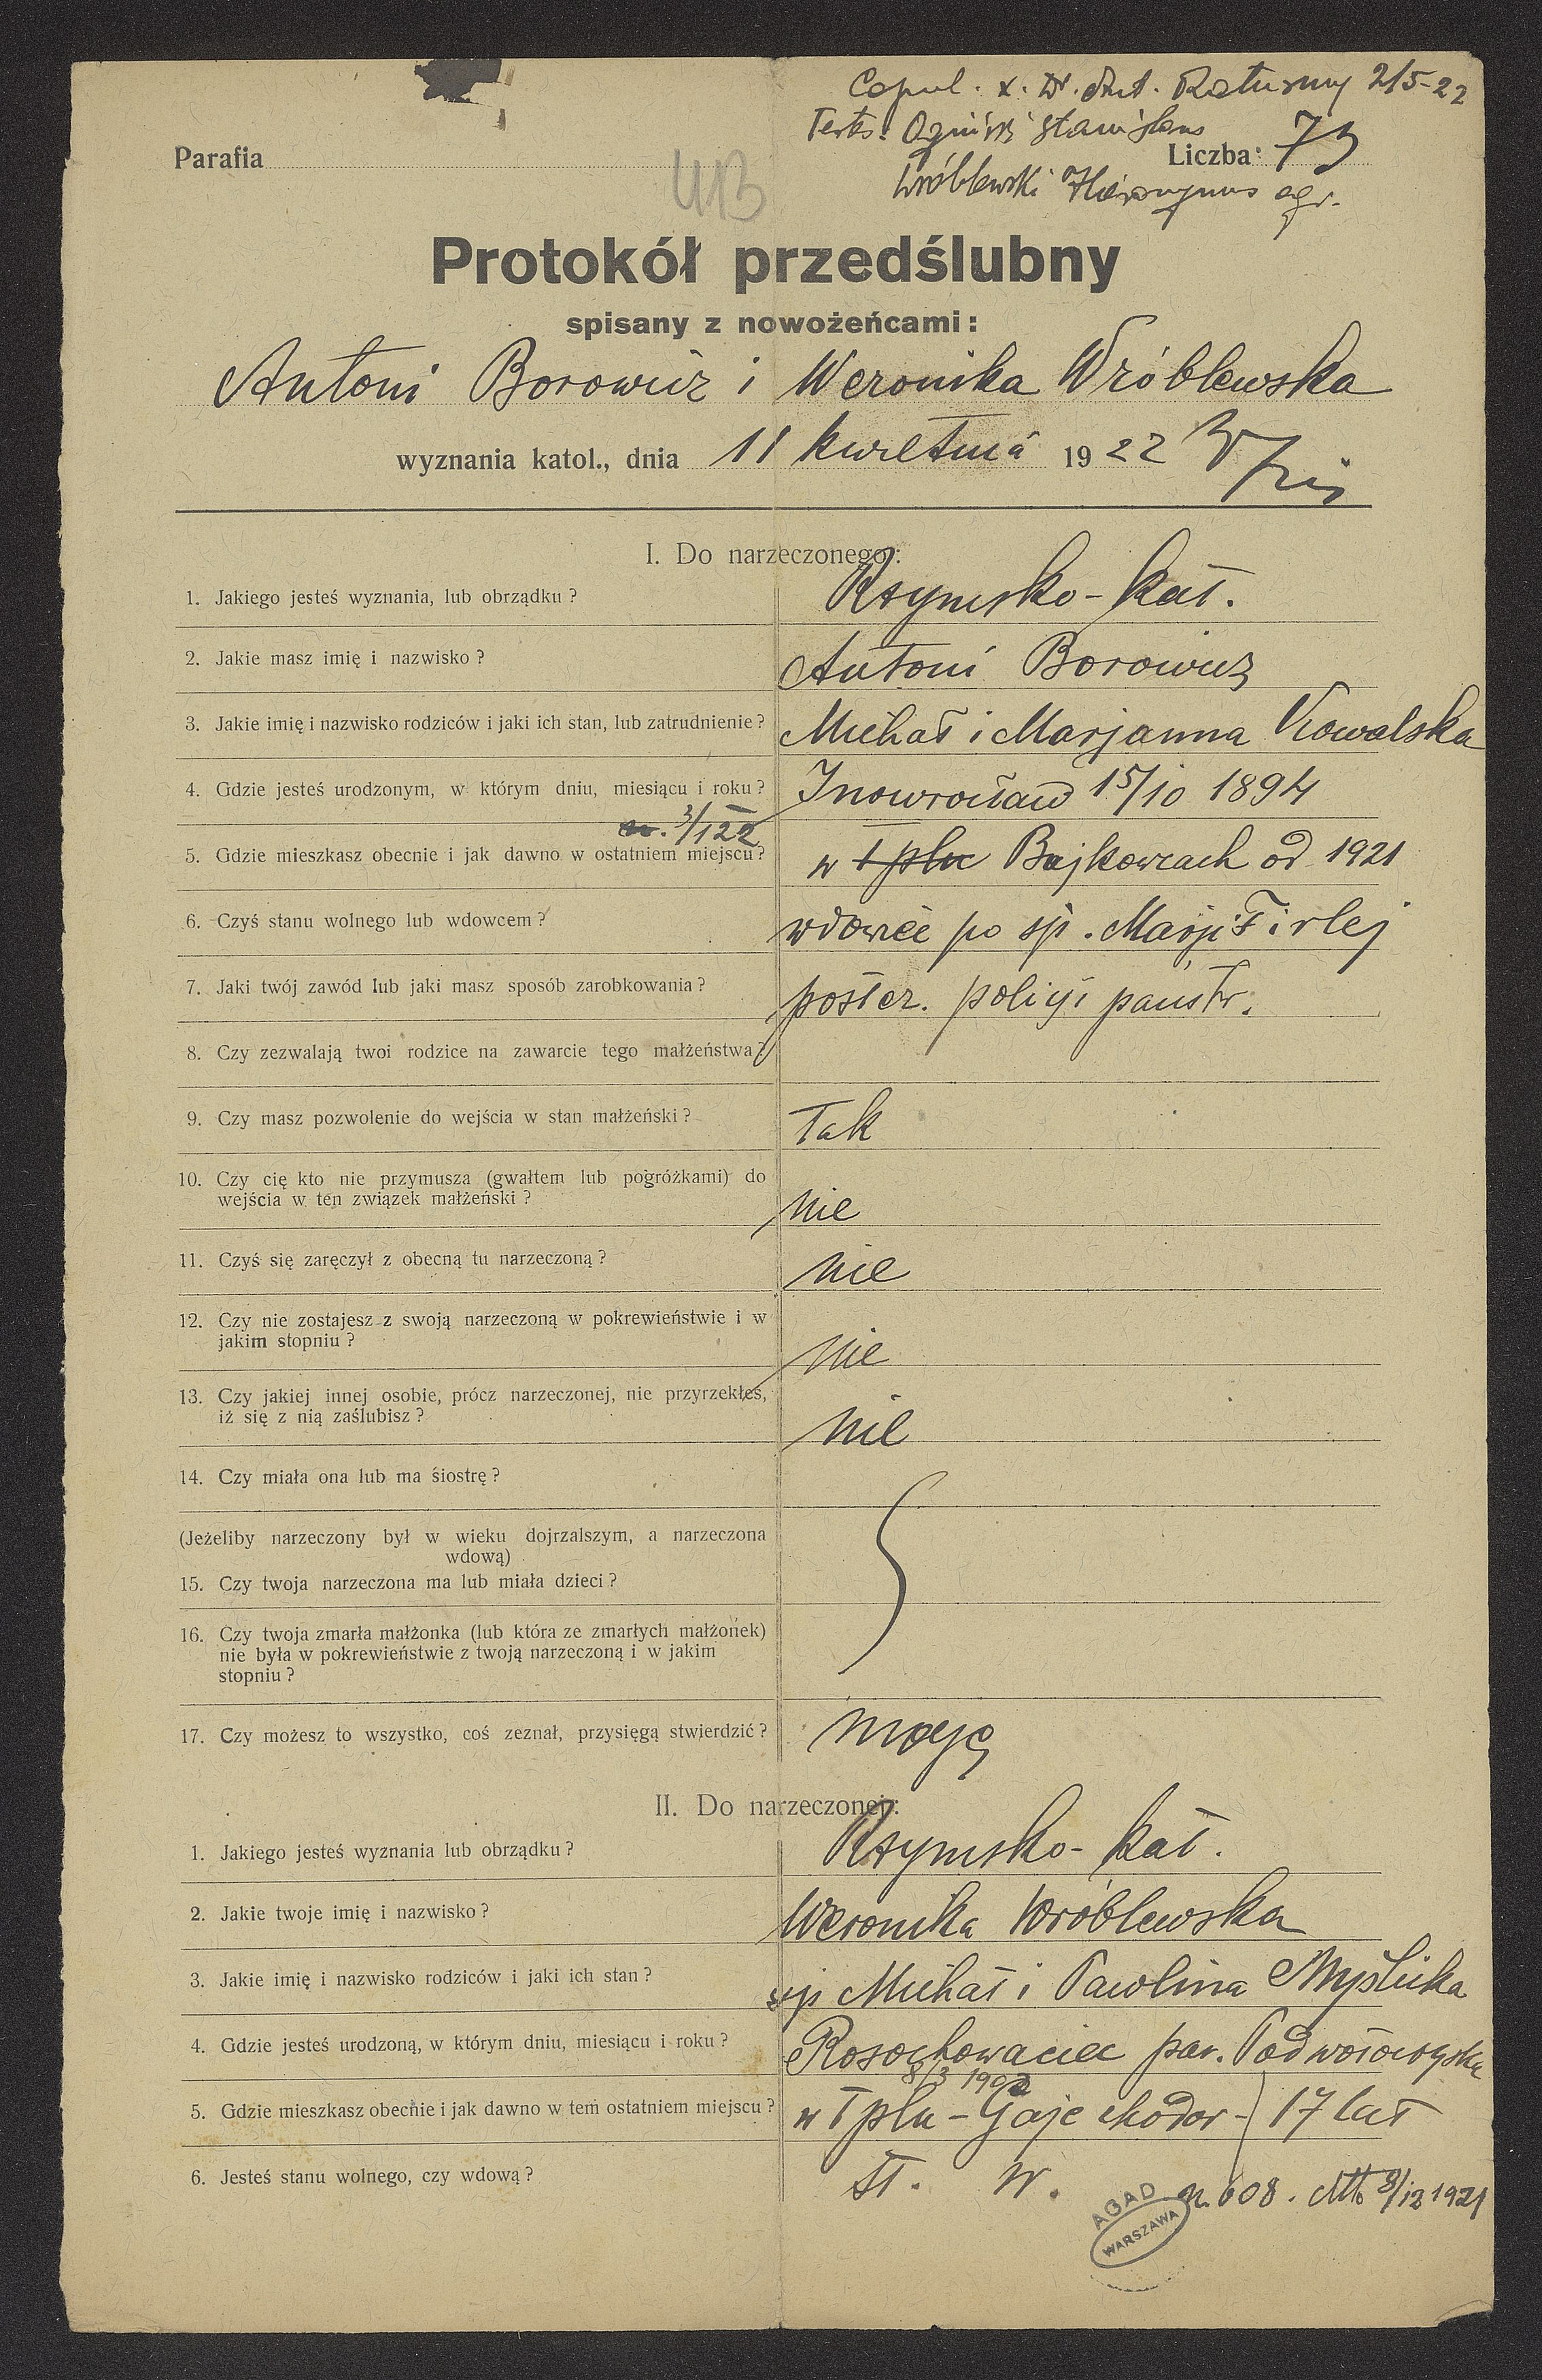 Copul. x. Dr. Ant. Ratuszny 2/5-22
Testes: Ogiński Stanislaus
Parafia
Liczba: 73
413
Wróblewski Hieronymus agr.
Protokół przedślubny
spisany z nowożeńcami:
Antoni Borowicz i Weronika Wróblewska
wyznania katol., dnia 11 kwietnia 1922
I. Do narzeczonego:
1. Jakiego jesteś wyznania, lub obrządku? Rzymsko-kat.
2. Jakie masz imię i nazwisko? Antoni Borowicz
3. Jakie imię i nazwisko rodziców i jaki ich stan, lub zatrudnienie? Michał i Marjanna Kowalska
4. Gdzie jesteś urodzonym, w którym dniu, miesiącu i roku? Inowrocław 15/10 1894
3/122
5. Gdzie mieszkasz obecnie i jak dawno w ostatniem miejscu? w Tplu Bajkowcach od 1921
6. Czyś stanu wolnego lub wdowcem? wdowiec po śp. Marji Firlej
7. Jaki twój zawód lub jaki masz sposób zarobkowania? poster. policji państw.
8. Czy zezwalają twoi rodzice na zawarcie tego małżeństwa?
9. Czy masz pozwolenie do wejścia w stan małżeński? Tak
10. Czy cię kto nie przymusza (gwałtem lub pogróżkami) do
wejścia w ten związek małżeński? nie
11. Czyś się zaręczył z obecną tu narzeczoną? nie
12. Czy nie zostajesz z swoją narzeczoną w pokrewieństwie i w
jakim stopniu? nie
13. Czy jakiej innej osobie, prócz narzeczonej, nie przyrzekłeś,
iż się z nią zaślubisz? nie
14. Czy miała ona lub ma siostrę?
(Jeżeliby narzeczony był w wieku dojrzalszym, a narzeczona
wdową)
15. Czy twoja narzeczona ma lub miała dzieci?
16. Czy twoja zmarła małżonka (lub która ze zmarłych małżonek)
nie była w pokrewieństwie z twoją narzeczoną i w jakim
stopniu?
17. Czy możesz to wszystko, coś zeznał, przysięgą stwierdzić? mogę
II. Do narzeczonej:
1. Jakiego jesteś wyznania lub obrządku? Rzymsko-kat.
2. Jakie twoje imię i nazwisko? Weronika Wróblewska
3. Jakie imię i nazwisko rodziców i jaki ich stan? śp Michał i Paulina Myślicka
4. Gdzie jesteś urodzoną, w którym dniu, miesiącu i roku? Rosochowaciec par. Podwołoczyska
8/3 1902
5. Gdzie mieszkasz obecnie i jak dawno w tem ostatniem miejscu? w Tplu - Gaje chodor - 17 lat
6. Jesteś stanu wolnego, czy wdową? st. w.
n. 608. 8/12 1921
AGAD
WARSZAWA